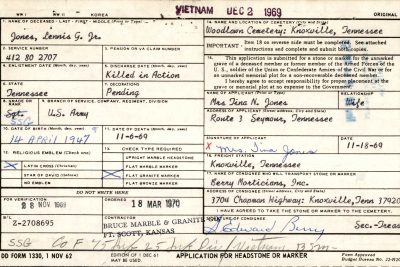 VIETNAM DEC 2 1969
WW I WW II KOREA
1. NAME OF DECEASED (LAST - FIRST - MIDDLE) (Print or Type)
Jones, Lennis G. Jr.
2. SERVICE NUMBER
3. PENSION OR VA CLAIM NUMBER
412 80 2707
4. ENLISTMENT DATE (Month, day, year)
5. DISCHARGE DATE (Month, day, year)
Killed in Action
6. STATE
7. DECORATIONS
Tennessee
Pending
8. GRADE OR RANK
9. BRANCH OF SERVICE, COMPANY, REGIMENT, DIVISION
Sgt.
U.S. Army
SSG
10. DATE OF BIRTH (Month, day, year)
11. DATE OF DEATH (Month, day, year)
14 April 1947
11-6-69
12. RELIGIOUS EMBLEM (Check one)
13. CHECK TYPE REQUIRED
LATIN CROSS (Christian)
STAR OF DAVID (Hebrew)
NO EMBLEM
UPRIGHT MARBLE HEADSTONE
FLAT MARBLE MARKER
FLAT GRANITE MARKER
FLAT BRONZE MARKER
DO NOT WRITE HERE
FOR VERIFICATION
ORDERED
28 NOV 1969
18 MAR 1970
BRUCE MARBLE & GRANITE
FT. SCOTT, KANSAS
Z-2708695
SSG Co F 75 Inf 25 Inf Div Vietnam BSM
DD FORM 1330, 1 NOV 62
EDITION OF 1 DEC 61
MAY BE USED
14. NAME AND LOCATION OF CEMETERY (City and State)
Woodlawn Cemetery: Knoxville, Tennessee
IMPORTANT - Item 18 on reverse side must be completed. See attached
instructions and complete and submit both copies.
15. This application is submitted for a stone or marker for the unmarked
grave of a deceased member or former member of the Armed Forces of the
U.S., soldier of the Union or Confederate Armies of the Civil War or for
an unmarked memorial plot for a non-recoverable deceased member.
I hereby agree to accept responsibility for proper placement at the
grave or memorial plot at no expense to the Government.
NAME OF APPLICANT (Print or Type)
RELATIONSHIP
Mrs Tina N. Jones
Wife
Route 3 Seymour, Tennessee
SIGNATURE OF APPLICANT
DATE
X Mrs. Tina Jones
11-18-69
16. FREIGHT STATION
Knoxville, Tennessee
17. NAME OF CONSIGNEE WHO WILL TRANSPORT STONE OR MARKER
Berry Morticians, Inc.
ADDRESS OF CONSIGNEE (Street address, City and State)
3704 Chapman Highway: Knoxville, Tenn 37920
I HAVE AGREED TO TAKE THE STONE OR MARKER TO THE CEMETERY.
Edward Berry
Sec-Treas
APPLICATION FOR HEADSTONE OR MARKER
Form Approved